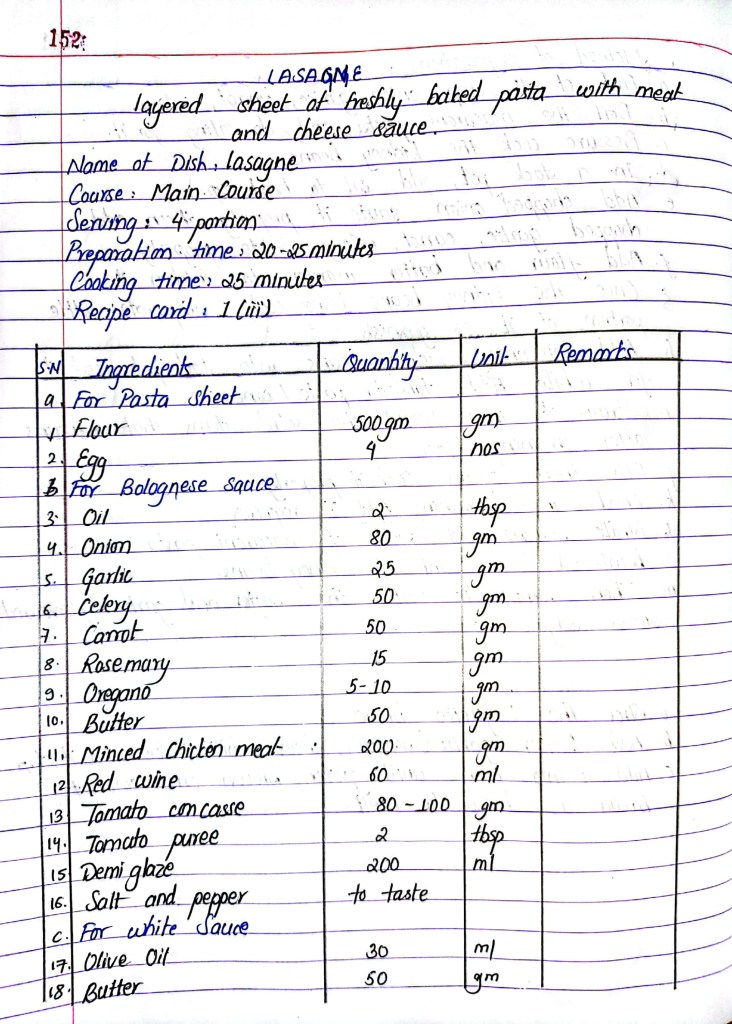 152:
LASAGNE
layered sheet of freshly baked pasta with meat
and cheese sauce.
Name of Dish: lasagne
Course: Main Course
Serving: 4 portion
Preparation time: 20-25 minutes
Cooking time: 25 minutes
Recipe card: 1 (iii)
S.N Ingredients Quantity Unit Remarks
a. For Pasta sheet
1 Flour 500 gm gm
2. Egg 4 nos
b For Bolognese sauce
3. Oil 2 tbsp
4. Onion 80 gm
5. Garlic 25 gm
6. Celery 50 gm
7. Carrot 50 gm
8. Rosemary 15 gm
9. Oregano 5-10 gm
10. Butter 50 gm
11. Minced Chicken meat 200 gm
12 Red wine 60 ml
13 Tomato concasse 80-100 gm
14. Tomato puree 2 tbsp
15 Demi glaze 200 ml
16. Salt and pepper to taste
c. For white Sauce
17. Olive Oil 30 ml
18. Butter 50 gm